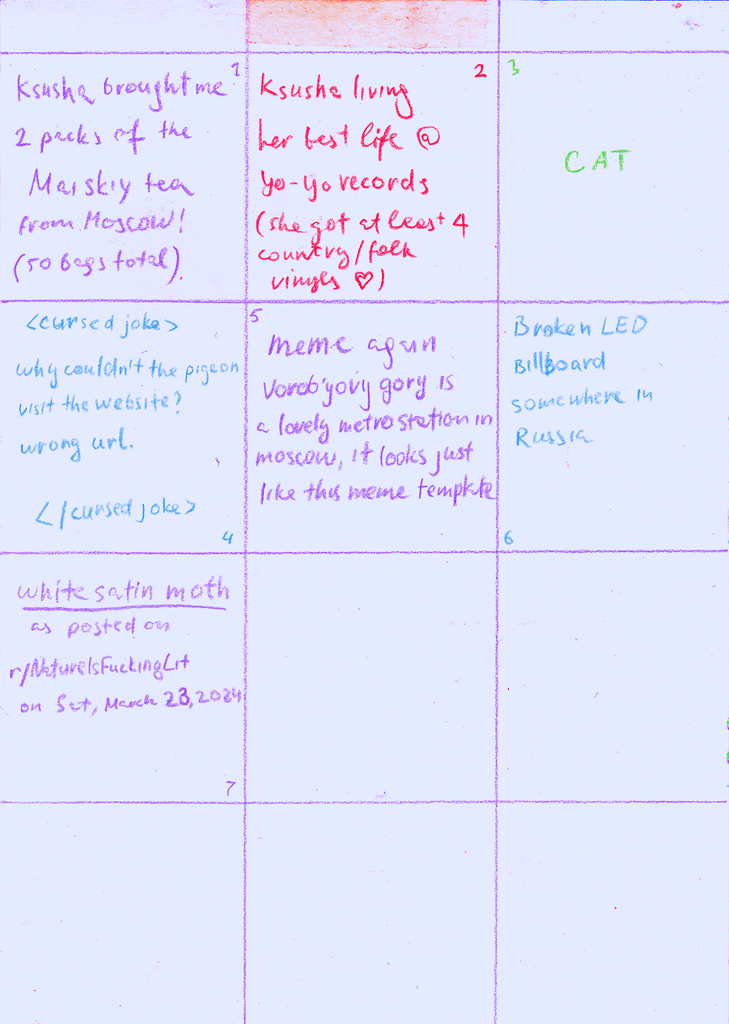 1
Ksusha brought me
2 packs of the
Maiskiy tea
from Moscow!
(50 bags total)
2
Ksusha living
her best life @
yo-yo records
(she got at least 4
country/folk
vinyls ♡)
3
CAT
<cursed joke>
why couldn't the pigeon
visit the website?
wrong url.
</cursed joke>
4
5
meme again
Vorob'yovy gory is
a lovely metro station in
moscow, it looks just
like this meme template
Broken LED
Billboard
somewhere in
Russia
6
white satin moth
as posted on
r/NatureIsFuckingLit
on Sat, March 23, 2024
7